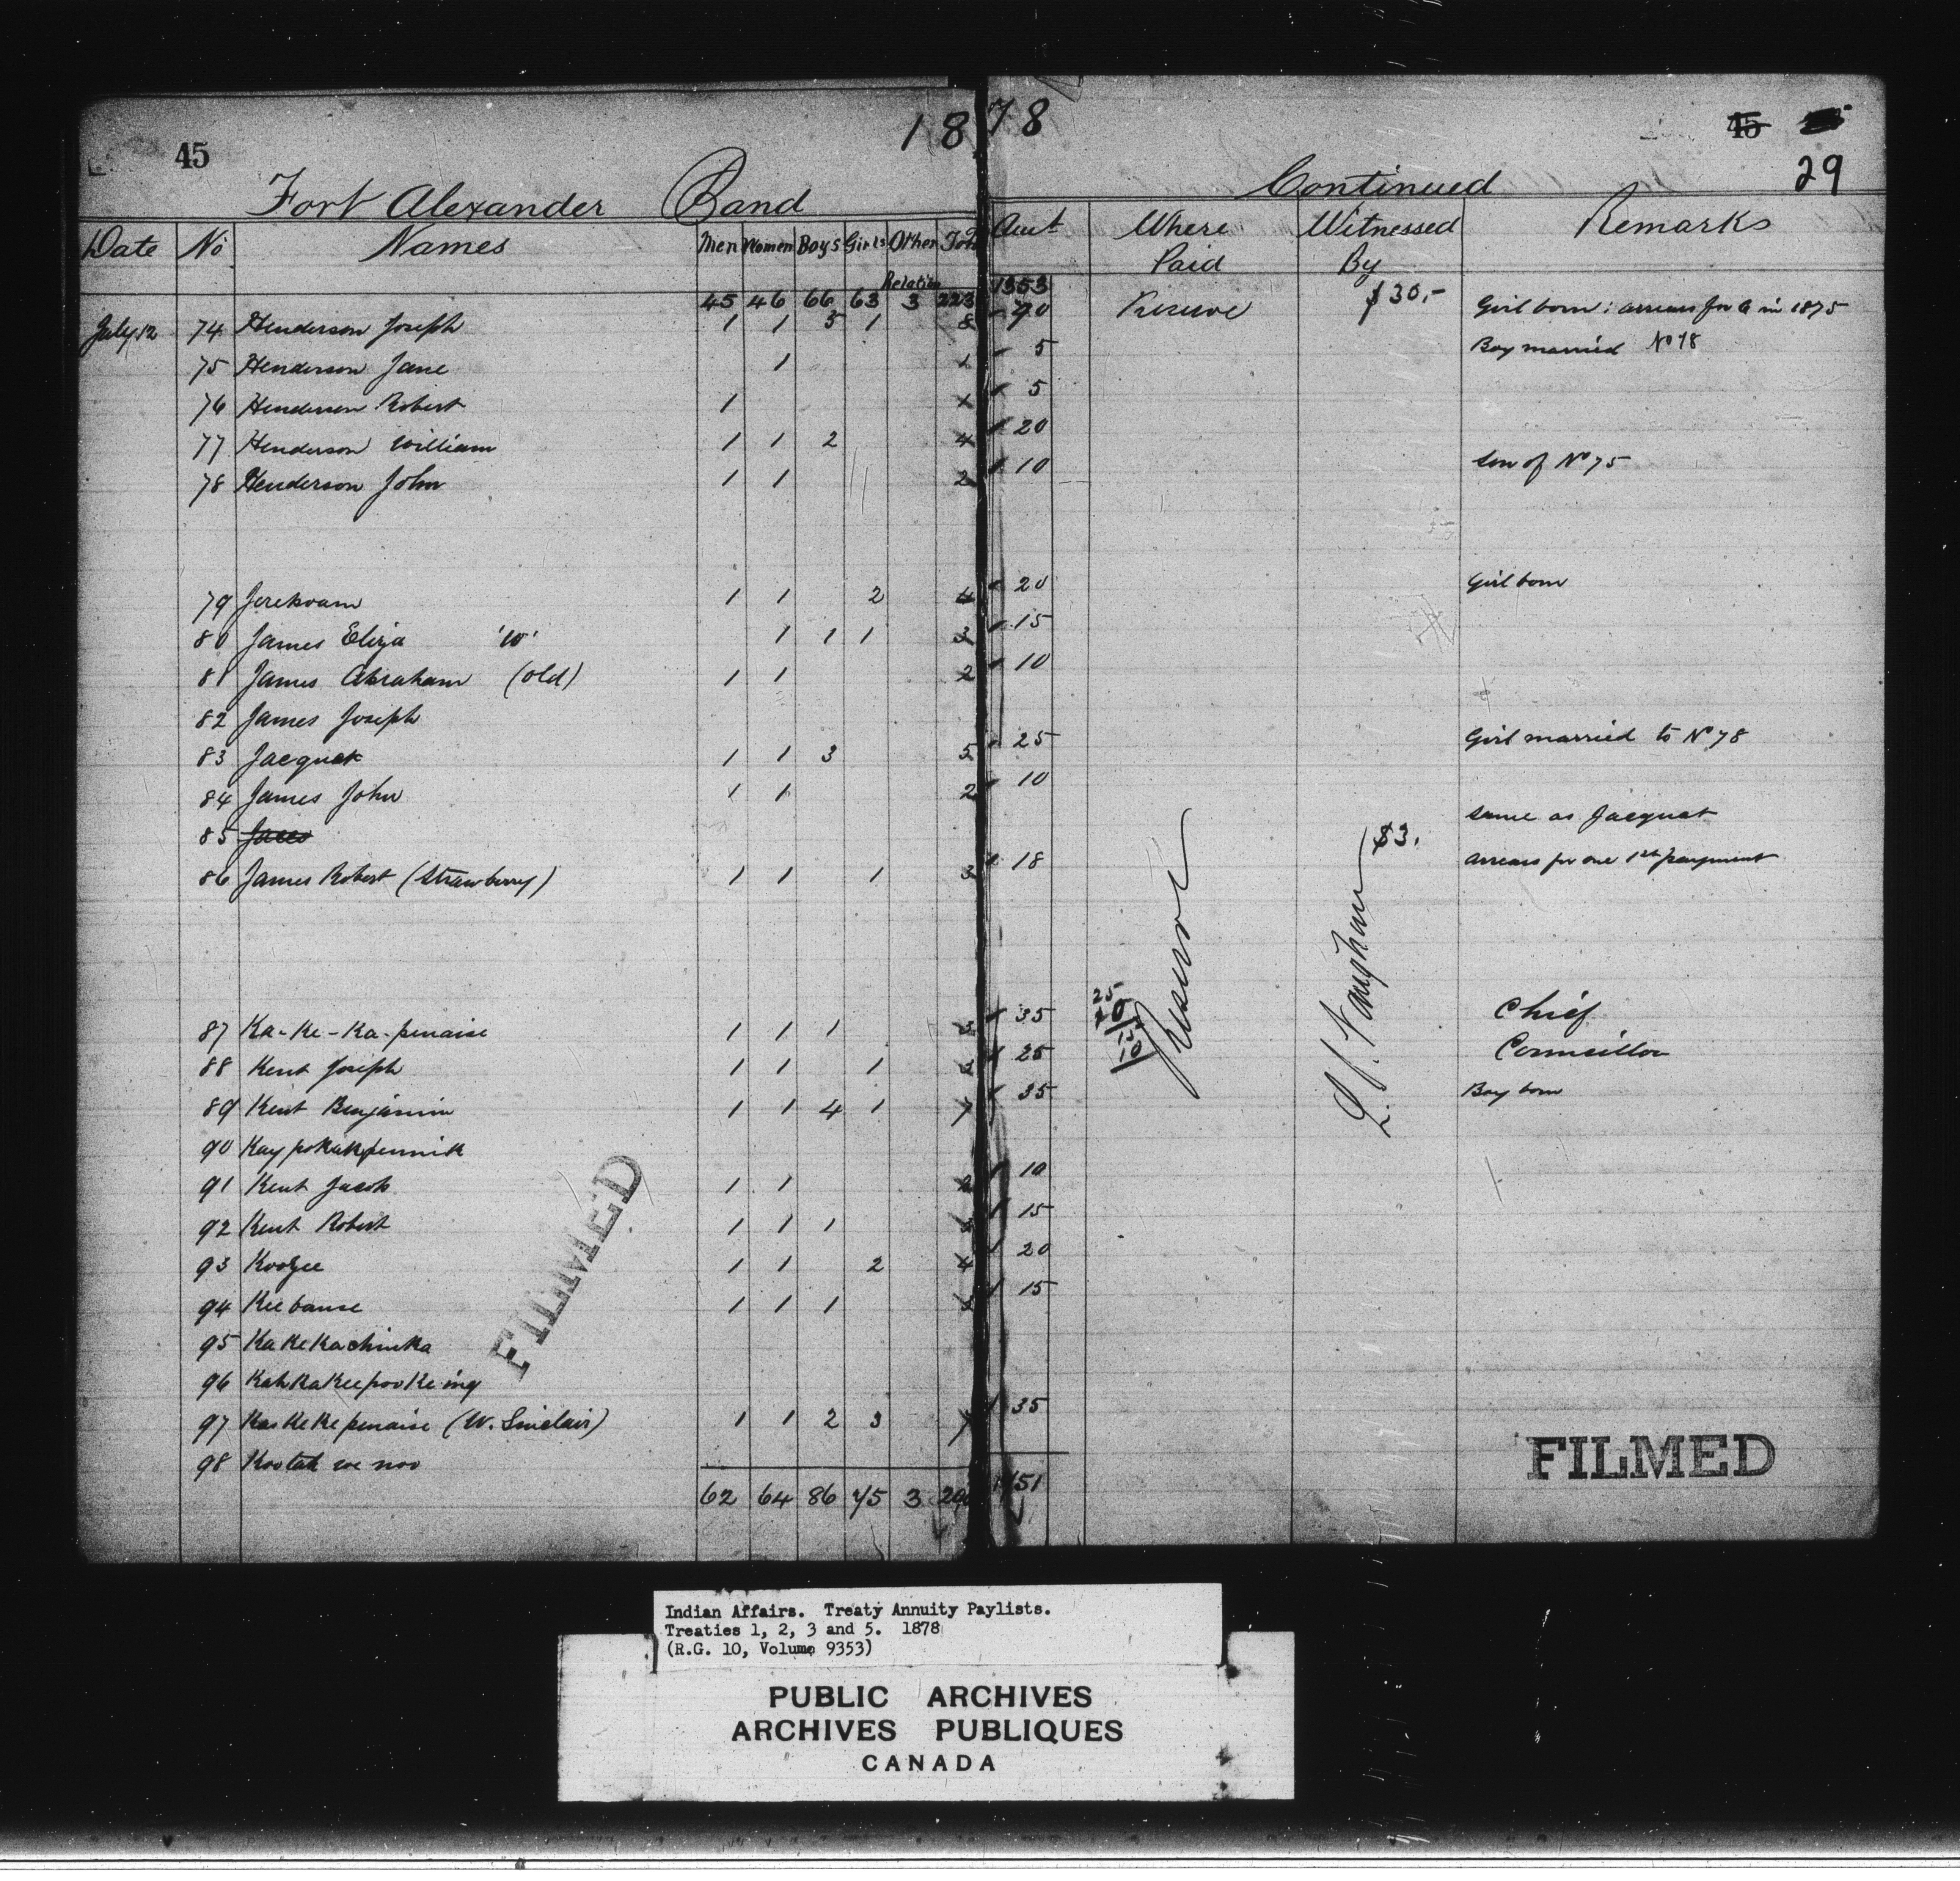 1878
45
45
29
Fort Alexander Band Continued
Date No Names Men Women Boys Girls Other Relation Total Amt Where Paid Witnessed By Remarks
45 46 66 63 3 223 1353
July 12 74 Henderson Joseph 1 1 5 1 8 70 Reserve $30,- Girl born: arrears for 6 in 1875
75 Henderson Jane 1 1 5 Boy married No 78
76 Henderson Robert 1 1 5
77 Henderson William 1 1 2 4 20
78 Henderson John 1 1 2 10 Son of No 75
79 1 1 2 4 20 Girl born
80 James Eliza 'W' 1 1 1 3 15
81 James Abraham (old) 1 1 2 10
82 James Joseph
83 Jacquot 1 1 3 5 25 Girl married to No 78
84 James John 1 1 2 10
85 Same as Jacquot
86 James Robert (Strawberry) 1 1 1 3 18 $3. arrears for one 1st payment
Reserve
87 Ka-Ke-Ka-penaise 1 1 1 3 35 Chief
25
10
88 Kent Joseph 1 1 1 3 25 Councillor
89 Kent Benjamin 1 1 4 1 7 35 Boy born
90
91 Kent Jacob 1 1 2 10
92 Kent Robert 1 1 1 3 15
93 1 1 2 4 20
94 Keebanse 1 1 1 3 15
95 Kakekachinka
96 Kahkakeepookeing
97 Kaskekepenaise (W. Sinclair) 1 1 2 3 7 35
98 Kootah we noo
62 64 86 75 3 290 51
FILMED
FILMED
Indian Affairs. Treaty Annuity Paylists.
Treaties 1, 2, 3 and 5. 1878
(R.G. 10, Volume 9353)
PUBLIC ARCHIVES
ARCHIVES PUBLIQUES
CANADA